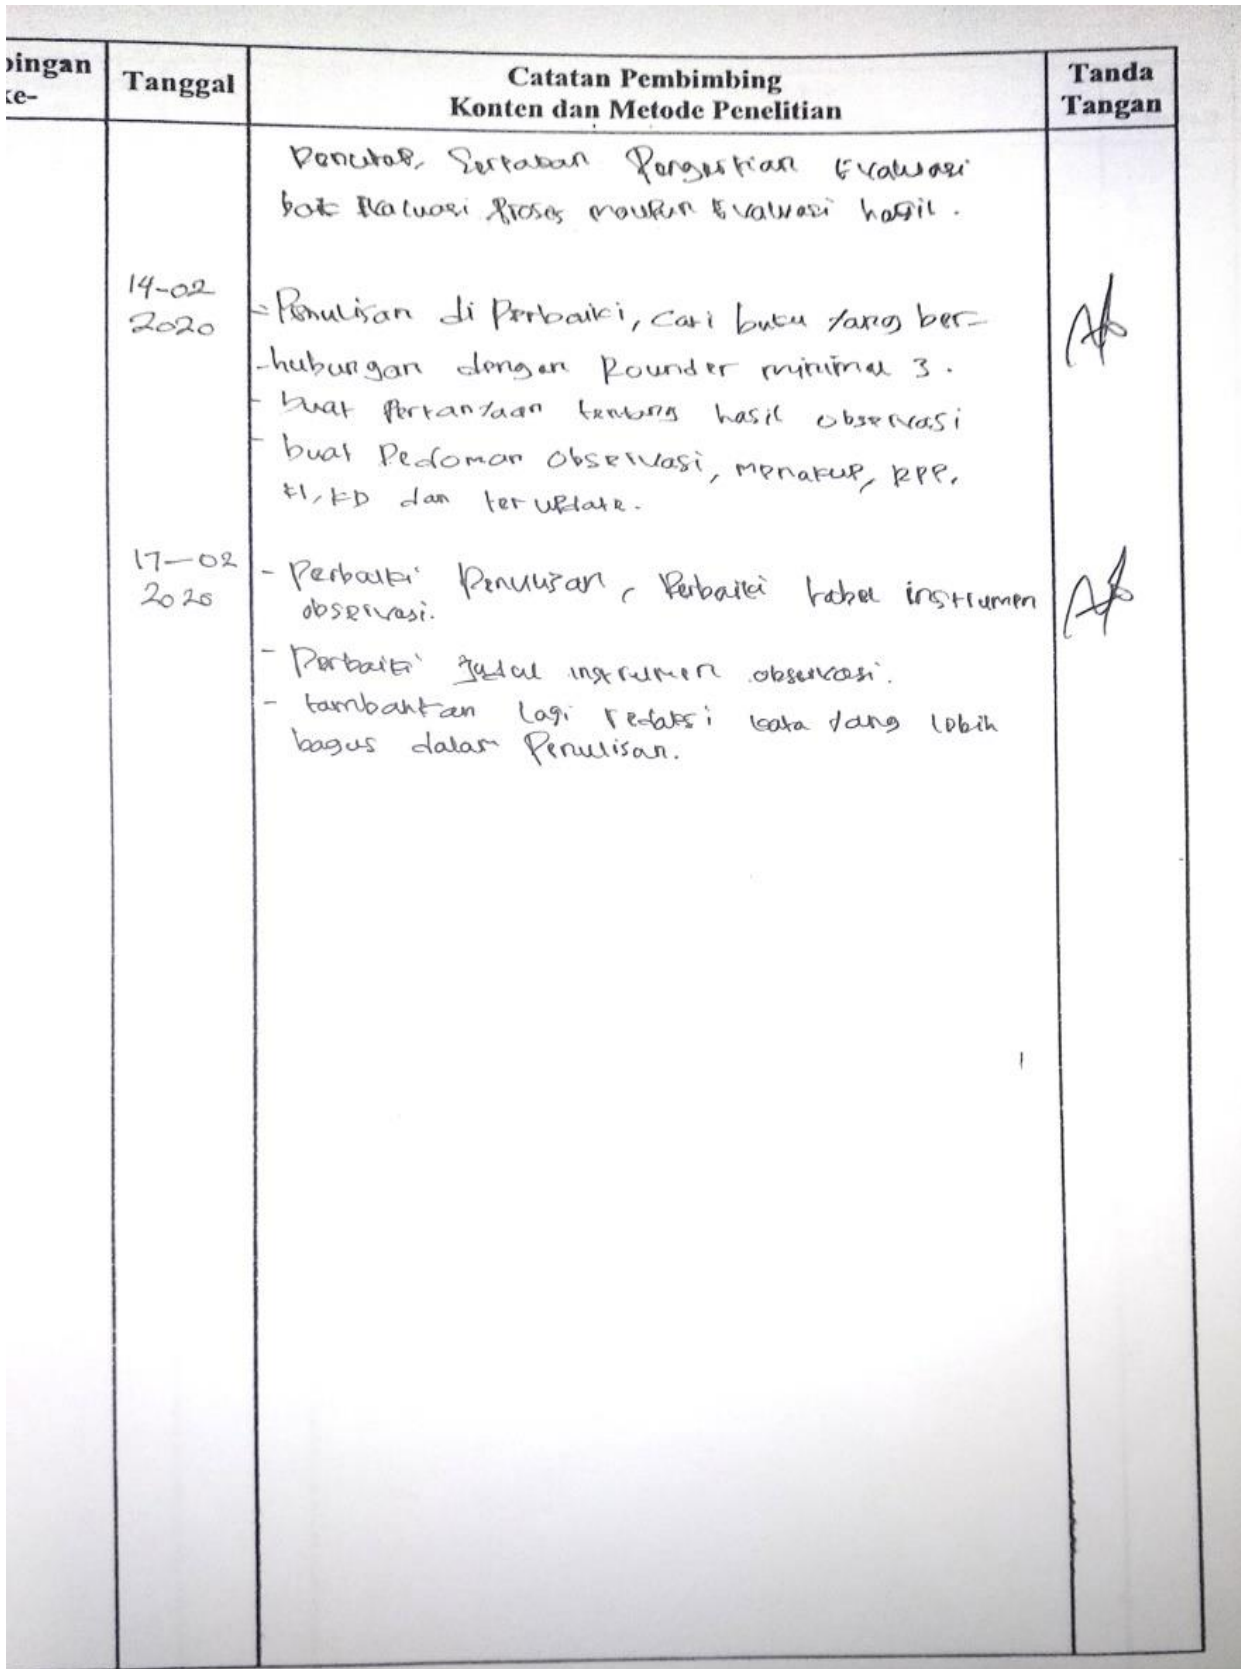 bingan Tanggal Catatan Pembimbing Tanda
ke- Konten dan Metode Penelitian Tangan
Penutup, Sertakan Pengertian Evaluasi
baik Evaluasi Proses maupun Evaluasi hasil.
14-02
2020
- Penulisan di Perbaiki, cari buku yang ber-
-hubungan dengan Rounder minimal 3.
- buat Pertanyaan tentang hasil observasi
- buat Pedoman observasi, mencakup, RPP,
KI, KD dan ter update.
17-02
2020
- Perbaiki Penulisan, Perbaiki tabel instrumen
observasi.
- Perbaiki Judul instrumen observasi.
- tambahkan lagi redaksi kata yang lebih
bagus dalam Penulisan.